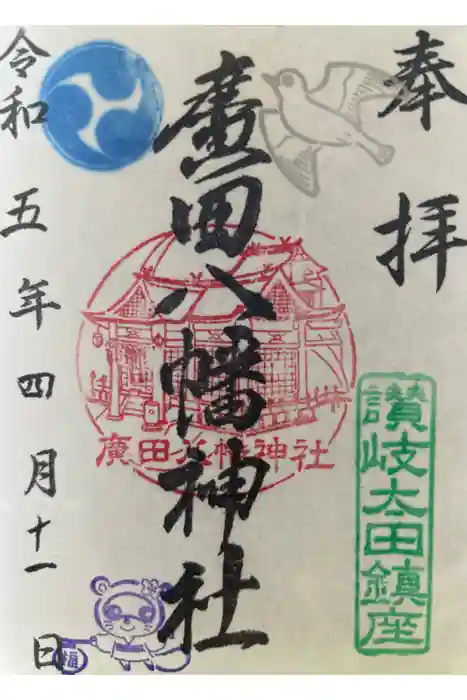 奉拝
讃岐太田鎮座
廣田八幡神社
廣田八幡神社
令和五年四月十一日
福